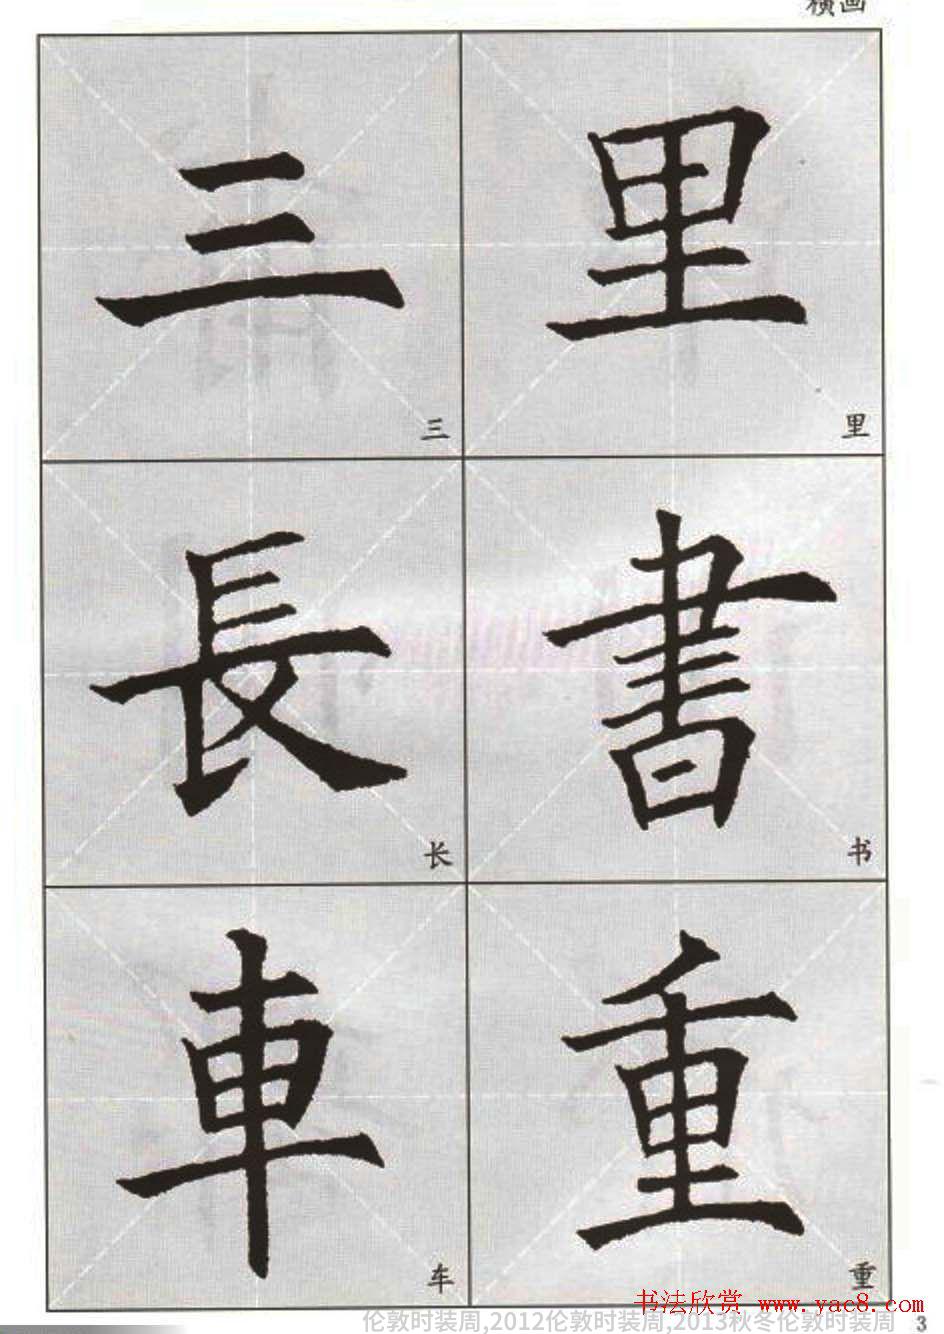 横画
三 里
三 里
長 書
长 书
車 重
车 重
书法欣赏 www.yac8.com
伦敦时装周,2012伦敦时装周,2013秋冬伦敦时装周 3